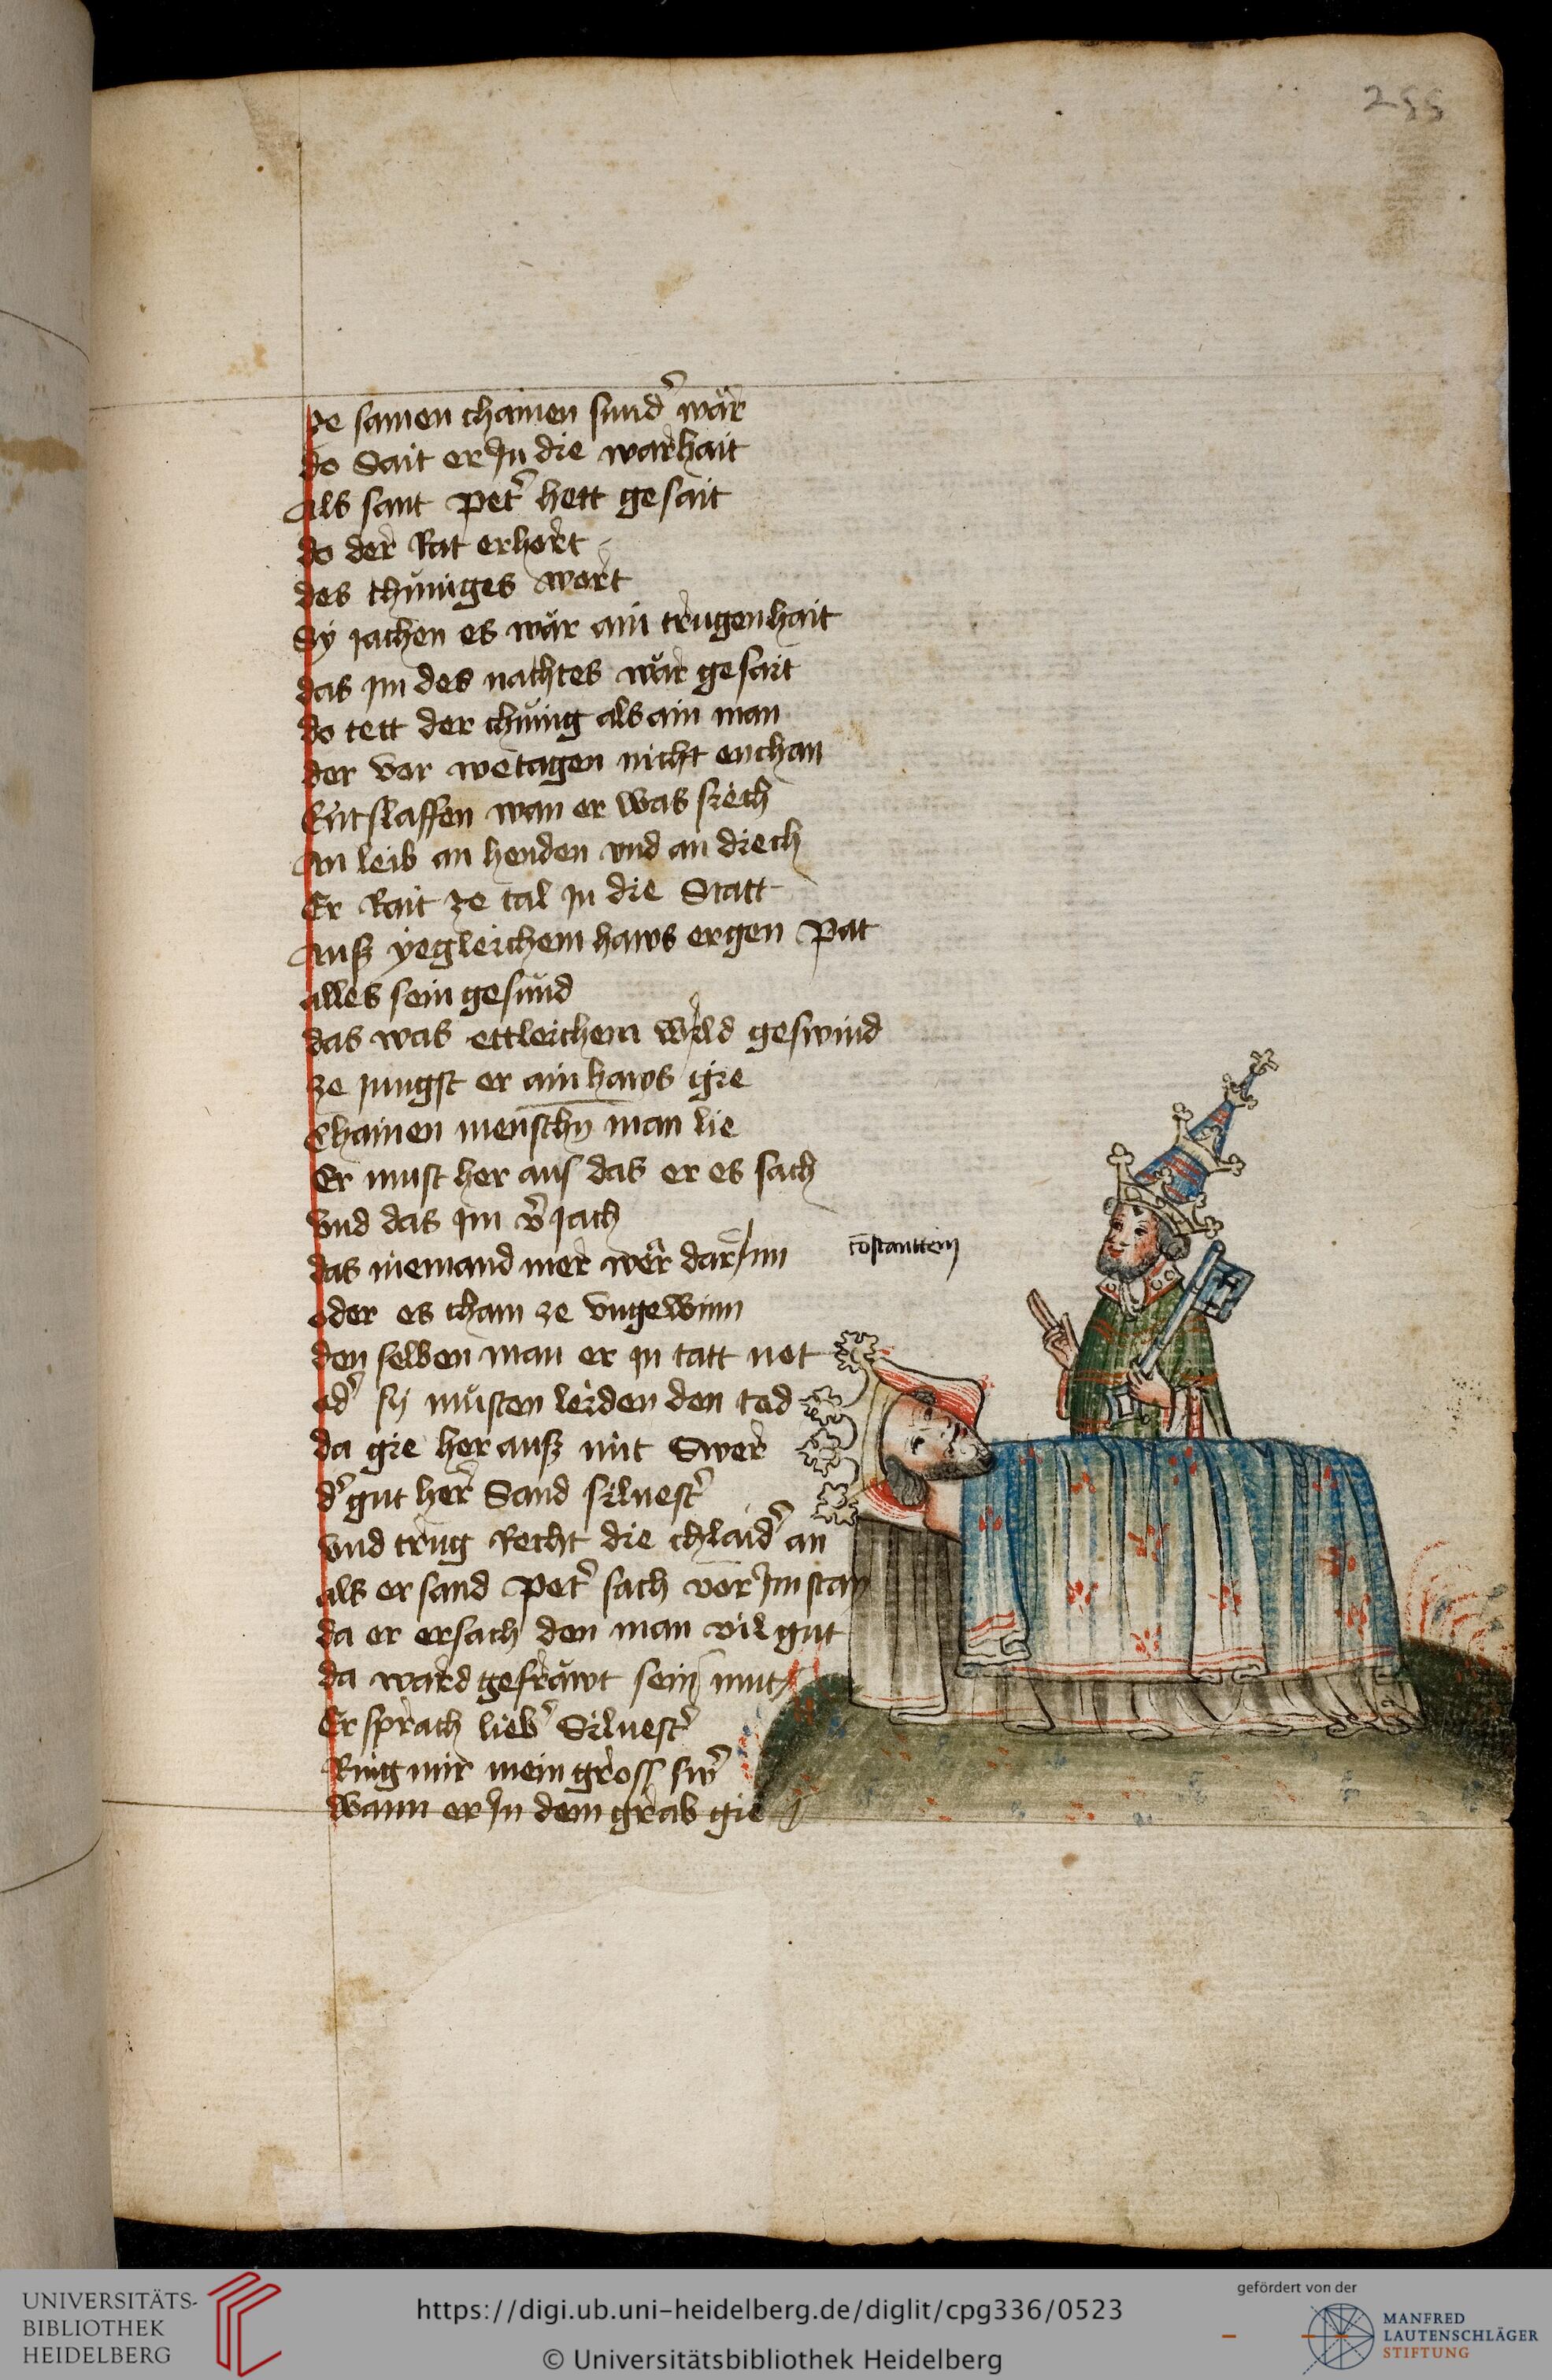 255
ze samen chainen sund̉ wär
do Sait er In die warhait
Als sant pet̉ hett gesait
do der Rat erhort
des chüniges wort
Sÿ jachen es wär ain trugenhait
das jm des nachtes wär gesait
do tett der chünig als ain man
der vor wetagen nicht enchan
Entslaffen wan er was siech
An leib an henden vnd an diech
Er Rait ze tal jn die Statt
Auß yegleichem haws er gen pat
alles sein gesind
das was ettleichem wild geswind
ze jungst er ain haws gie
Chainen menschn man lie
Er must her aus das er es sach
vnd das jm v̉jach
das niemand mer wër dar Inn
oder es cham ze vngewinn
den selben man er jn tatt not
od̉ sÿ müsten leiden den tod
da gie her auß mit Swer
d̉ gut her Sand siluest̉
vnd trug Recht die chlaid̉ an
als er sand pet̉ sach vor Im stan
da er ersach den man vil gut
da ward gefräwt sein mut
Er sprach lieb̉ Siluest̉
Ring mir mein gross sw̉
Wann er In dem grab gie
co̅stanttein
UNIVERSITÄTS-
BIBLIOTHEK
HEIDELBERG
https://digi.ub.uni-heidelberg.de/diglit/cpg336/0523
© Universitätsbibliothek Heidelberg
gefördert von der
MANFRED
LAUTENSCHLÄGER
STIFTUNG